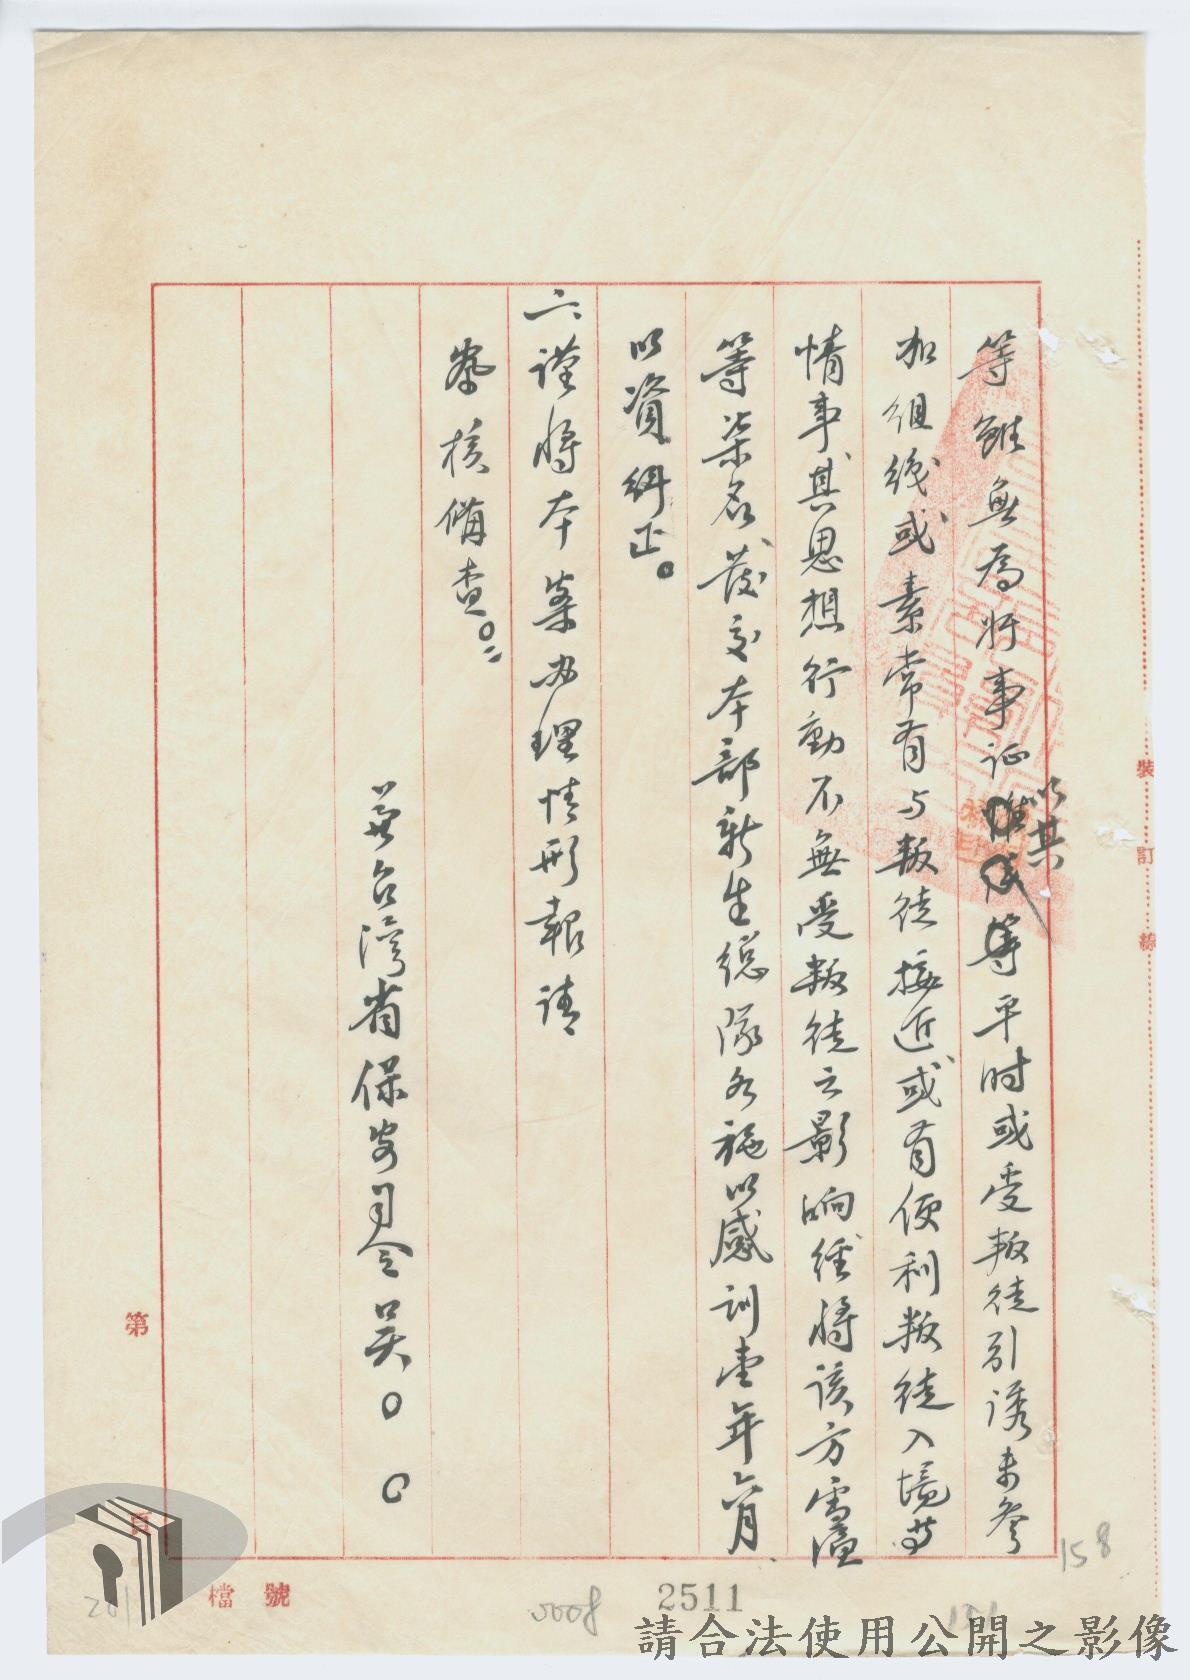 等雖無為奸事証以其等平时或受叛徒引誘未參
加组织或素常有与叛徒接近或有便利叛徒入境等
情事其思想行動不無受叛徒之影响經將該方雲溎
等柒名發交本部新生總隊各施以感訓壹年六月
以資糾正。
六謹將本案办理情形報請
鉴核備查。
兼台湾省保安司令吳○○
裝
訂
線
第
頁
檔號
158
0008
2511
請合法使用公開之影像